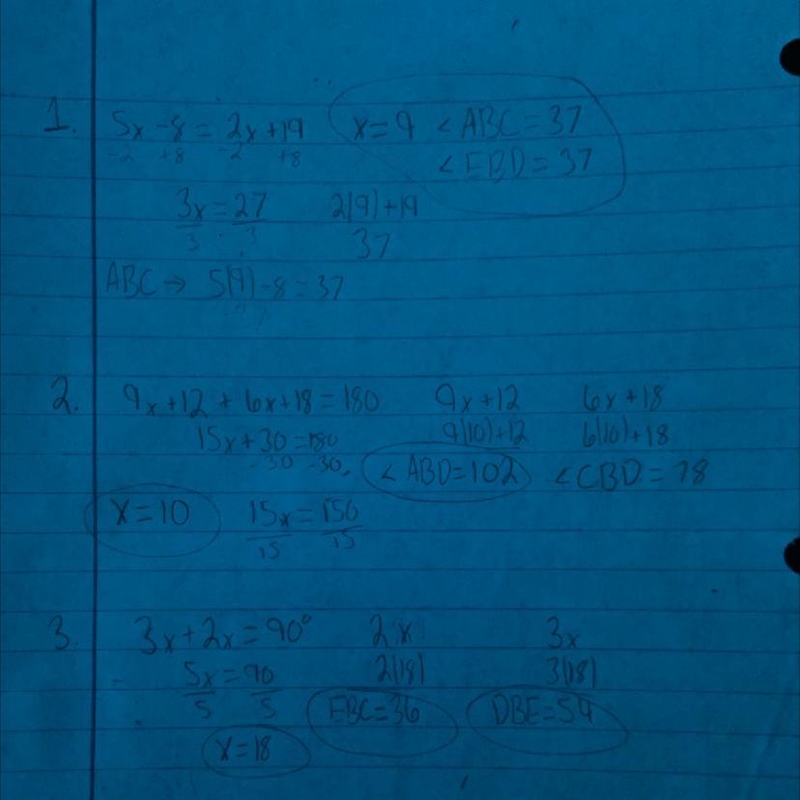 1. 5x - 8 = 2x + 19 x = 9 < ABC = 37
-2 +8 -2 +8 < EBD = 37
3x = 27 2(9) + 19
3 3 37
ABC → 5(9) - 8 = 37
2. 9x + 12 + 6x + 18 = 180 9x + 12 6x + 18
15x + 30 = 180 9(10) + 12 6(10) + 18
-30 -30 < ABD = 102 < CBD = 78
x = 10 15x = 150
15 15
3. 3x + 2x = 90° 2x 3x
5x = 90 2(18) 3(18)
5 5 EBC = 36 DBE = 54
x = 18